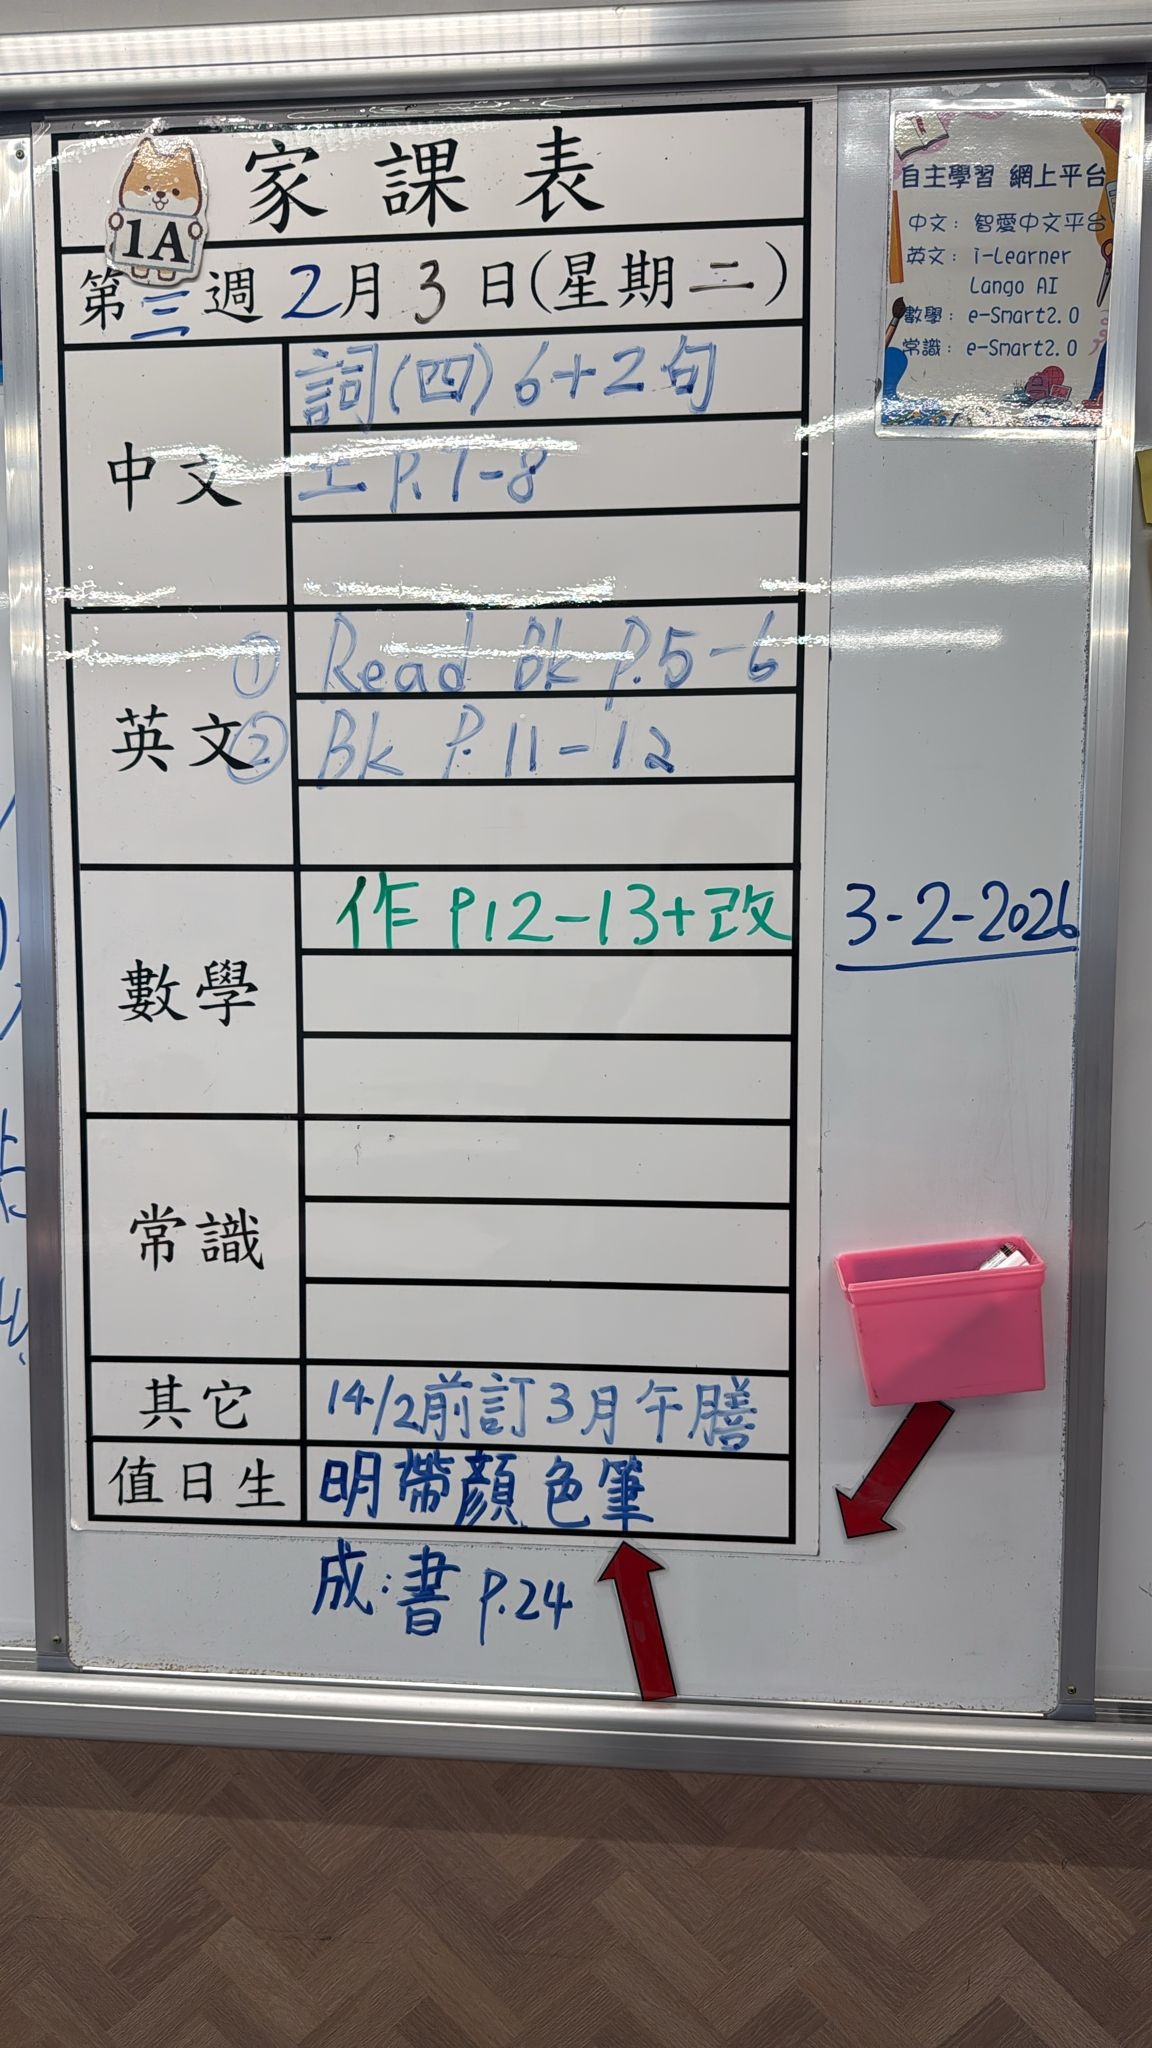 家課表
1A
第三週 2月3日(星期二)
中文
詞(四) 6+2句
工 P.7-8
英文
① Read Bk P.5-6
② Bk P.11-12
數學
作 P12-13+改
常識
其它
14/2前訂3月午膳
值日生
明帶顏色筆
成:書 P.24
3-2-2026
自主學習 網上平台
中文: 智愛中文平台
英文: i-Learner
Lango AI
數學: e-Smart2.0
常識: e-Smart2.0